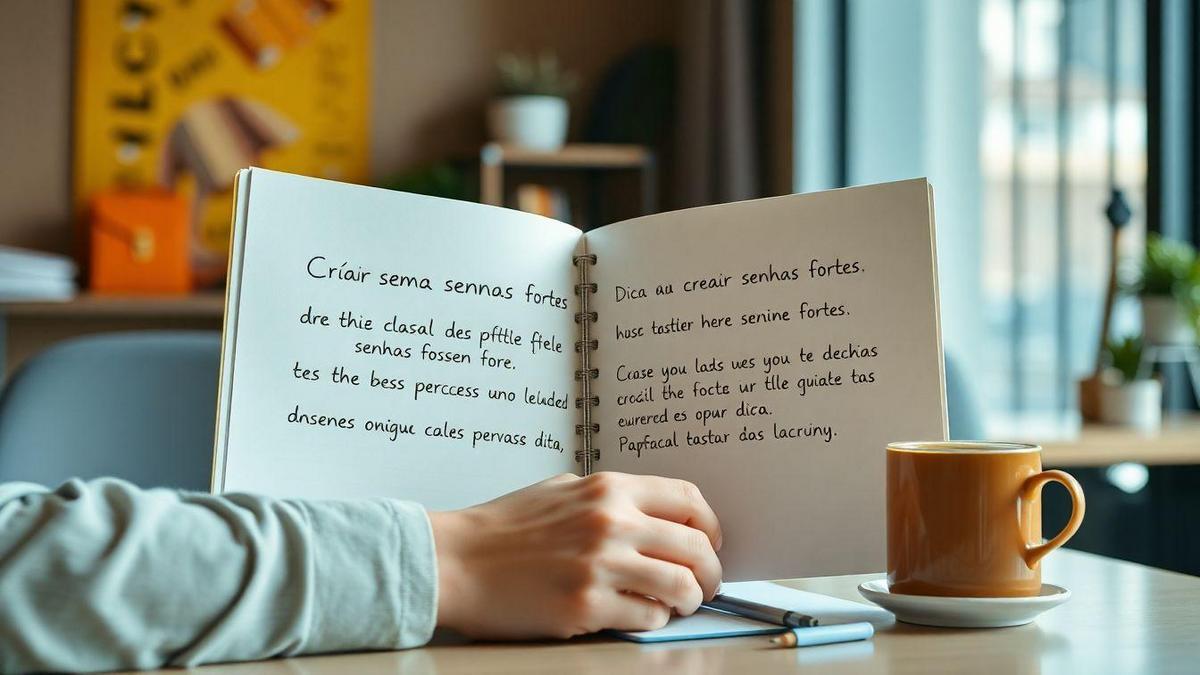 Críair sema sennas fortes
dre thie clasal des pfttle fiele
senhas fossen fore.
tes the bess perccess uno leluded
dnsenes onigue cales pervass dita,
Dica au creair senhas fortes.
husc tastler here senine fortes.
Ccase you lads wes you te dechias
crocil the focte ur tlle quiate tas
eurered es opur dica.
Papfacal tastar das lacruny.